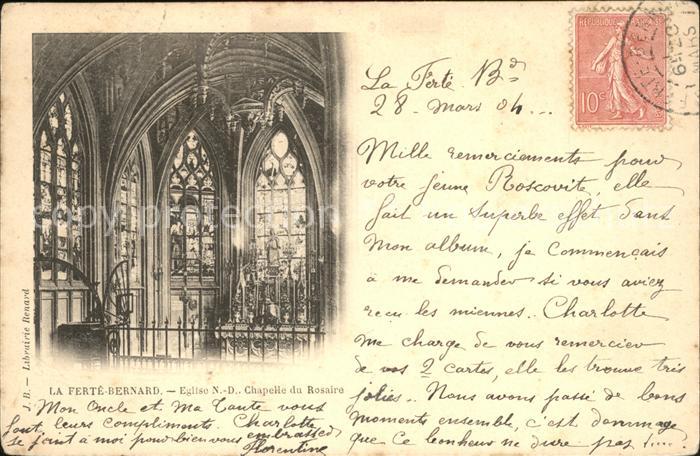 RÉPUBLIQUE FRANÇAISE
10c
La Ferté Bd
28 Mars 04...
Mille remerciements pour
votre jeune Roscovite, elle
fait un superbe effet dans
mon album, je commençais
à me demander si vous aviez
reçu les miennes. Charlotte
me charge de vous remercier
de vos 2 cartes, elle les trouve très
jolies. Nous avons passé de bons
moments ensemble, c'est dommage
que ce bonheur ne dure pas!....
J. B. — Librairie Renard
LA FERTÉ-BERNARD. — Eglise N.-D., Chapelle du Rosaire
Mon Oncle et Ma Tante vous
font leurs compliments. Charlotte
se joint à moi pour bien vous embrasser
Florentine